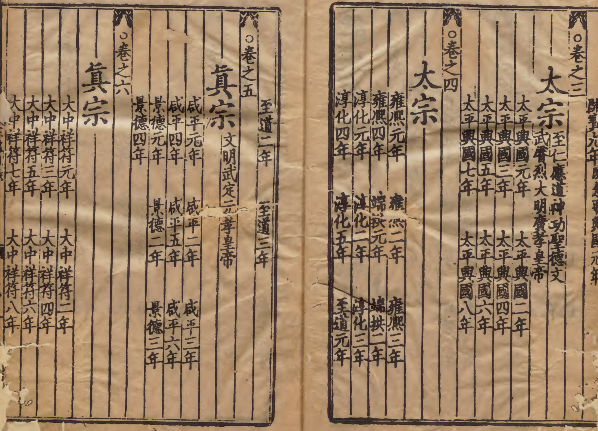 ○卷之三
太宗 至仁應道神功聖德文
武睿烈大明廣孝皇帝
太平興國元年 太平興國二年
太平興國三年 太平興國四年
太平興國五年 太平興國六年
太平興國七年 太平興國八年
○卷之四
太宗
雍熙元年 雍熙二年 雍熙三年
雍熙四年 端拱元年 端拱二年
淳化元年 淳化二年 淳化三年
淳化四年 淳化五年 至道元年
至道二年 至道三年
○卷之五
眞宗 文明武定元孝皇帝
咸平元年 咸平二年 咸平三年
咸平四年 咸平五年 咸平六年
景德元年 景德二年 景德三年
景德四年
○卷之六
眞宗
大中祥符元年 大中祥符二年
大中祥符三年 大中祥符四年
大中祥符五年 大中祥符六年
大中祥符七年 大中祥符八年